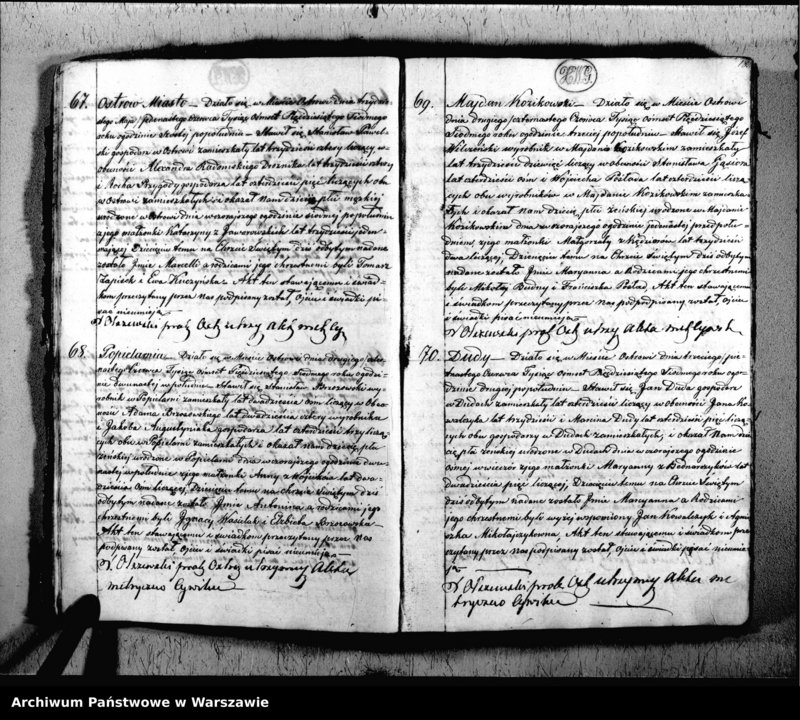 67. Ostrow Miasto – Działo się w Mieście Ostrowi dnia trzydzie-
stego Maja, jedenastego Czerwca Tysiąc Ośmset Pięćdziesiątego Siedmego
roku o godzinie szóstej popołudniu – Stawił się Stanisław
gospodarz w Ostrowi zamieszkały lat trzydzieści cztery liczący w
obecności Alexandra Radomskiego Drożnika lat trzydzieści cztery
i Rocha Przygody gospodarza lat czterdzieści pięć liczących obu
w Ostrowi zamieszkałych i okazał Nam dziecię płci męzkiej
urodzone w Ostrowi dnia wczorajszego o godzinie siódmej popołudniu
z jego małżonki Katarzyny z Jaworowskich lat trzydzieści jeden
mającej Dziecięciu temu na Chrzcie Świętym dziś odbytym nadane
zostało Imie Marcelli a rodzicami jego chrzestnemi byli Tomasz
Zapisek i Ewa Kuczyńska. Akt ten stawającemu i świad-
kom przeczytany przez Nas podpisany został, Ojciec i świadki pi-
sać nieumieją
X Olszewski prob. Ostr. utrzy. akt. met. Cy.
68. Popielarnia – Działo się w Mieście Ostrowi dnia drugiego, czter-
nastego Czerwca Tysiąc Ośmset Pięćdziesiątego Siedmego roku o godzi-
nie dwunastej w południe. Stawił się Stanisław Brzozowski wy-
robnik w Popielarni zamieszkały lat dwadzieścia ośm liczący w obe-
cności Adama Brzozowskiego lat dwadzieścia cztery wyrobnika
i Jakóba Augustyniaka gospodarza lat czterdzieści trzy licza-
cych obu w Popielarni zamieszkałych i okazał nam dziecię płci
żeńskiej urodzone w Popielarni dnia wczorajszego o godzinie dwu-
nastej w południe z jego małżonki Anny z Wójcików lat dwa-
dzieścia ośm liczącej, Dziecięciu temu na chrzcie Świętym dziś
odbytym nadane zostało Imie Antonina a rodzicami jego
chrzestnemi byli Ignacy Wasilak i Elżbieta Brzozowska
Akt ten stawającemu i świadkom przeczytany przez Nas
podpisany został, Ojciec i świadki pisać nieumieją
X Olszewski prob. Ostr. utrzymy. Akta
metryczne Cywilne
69. Majdan Kozikowski – Działo się w Mieście Ostrowi
dnia drugiego czternastego Czerwca Tysiąc Ośmset Pięćdziesiątego
Siedmego roku o godzinie trzeciej popołudniu – Stawił się Józef
Wilczyński wyrobnik w Majdanie Kozikowskim zamieszkały
lat trzydzieści dziewięć liczący w obecności Stanisława Gąsiora
lat czterdzieści ośm i Wojciecha lat czterdzieści licza-
cych obu wyrobników w Majdanie Kozikowskim zamieszka-
łych i okazał Nam dziecię płci żeńskiej urodzone w Majdanie
Kozikowskim dnia wczorajszego o godzinie jedenastej przed połu-
dniem, z jego małżonki Małgorzaty z Kędziorów lat trzydzieści
dwa liczącej, Dziecięciu temu na Chrzcie Świętym dziś odbytym
nadane zostało Imie Maryanna a Rodzicami jego chrzestnemi
byli Mikołaj Budny i Franciszka Akt ten stawającemu
i świadkom przeczytany przez Nas podpisany został, Ojciec
i świadki pisać nieumieją
X Olszewski prob. Ostr. utrzy. Akta
70. Dudy – Działo się w Mieście Ostrowi dnia trzeciego, pię-
tnastego Czerwca Tysiąc Ośmset Pięćdziesiątego Siedmego roku o go-
dzinie drugiej popołudniu – Stawił się Jan Duda gospodarz
w Dudach zamieszkały lat czterdzieści liczący w obecności Jana Ko-
walczyka lat trzydzieści i Marcina Dudy lat czterdzieści pięć liczą-
cych obu gospodarzy w Dudach zamieszkałych, i okazał Nam dzie-
cię płci żeńskiej urodzone w Dudach dnia wczorajszego o godzinie
ósmej wieczór z jego małżonki Maryanny z Bednarczyków lat
dwadzieścia pięć liczącej, Dziecięciu temu na Chrzcie Świętym
dziś odbytym nadane zostało Imie Maryanna a Rodzicami
jego chrzestnemi byli wyżej wspomniony Jan Kowalczyk i Agnie-
szka Mikołajczykowna Akt ten stawającemu i świadkom prze-
czytany przez Nas podpisany został, Ojciec i świadki pisać nieumie-
ją
X Olszewski prob. Ostr. utrzymy. Akta me
tryczne Cywilne
Archiwum Państwowe w Warszawie